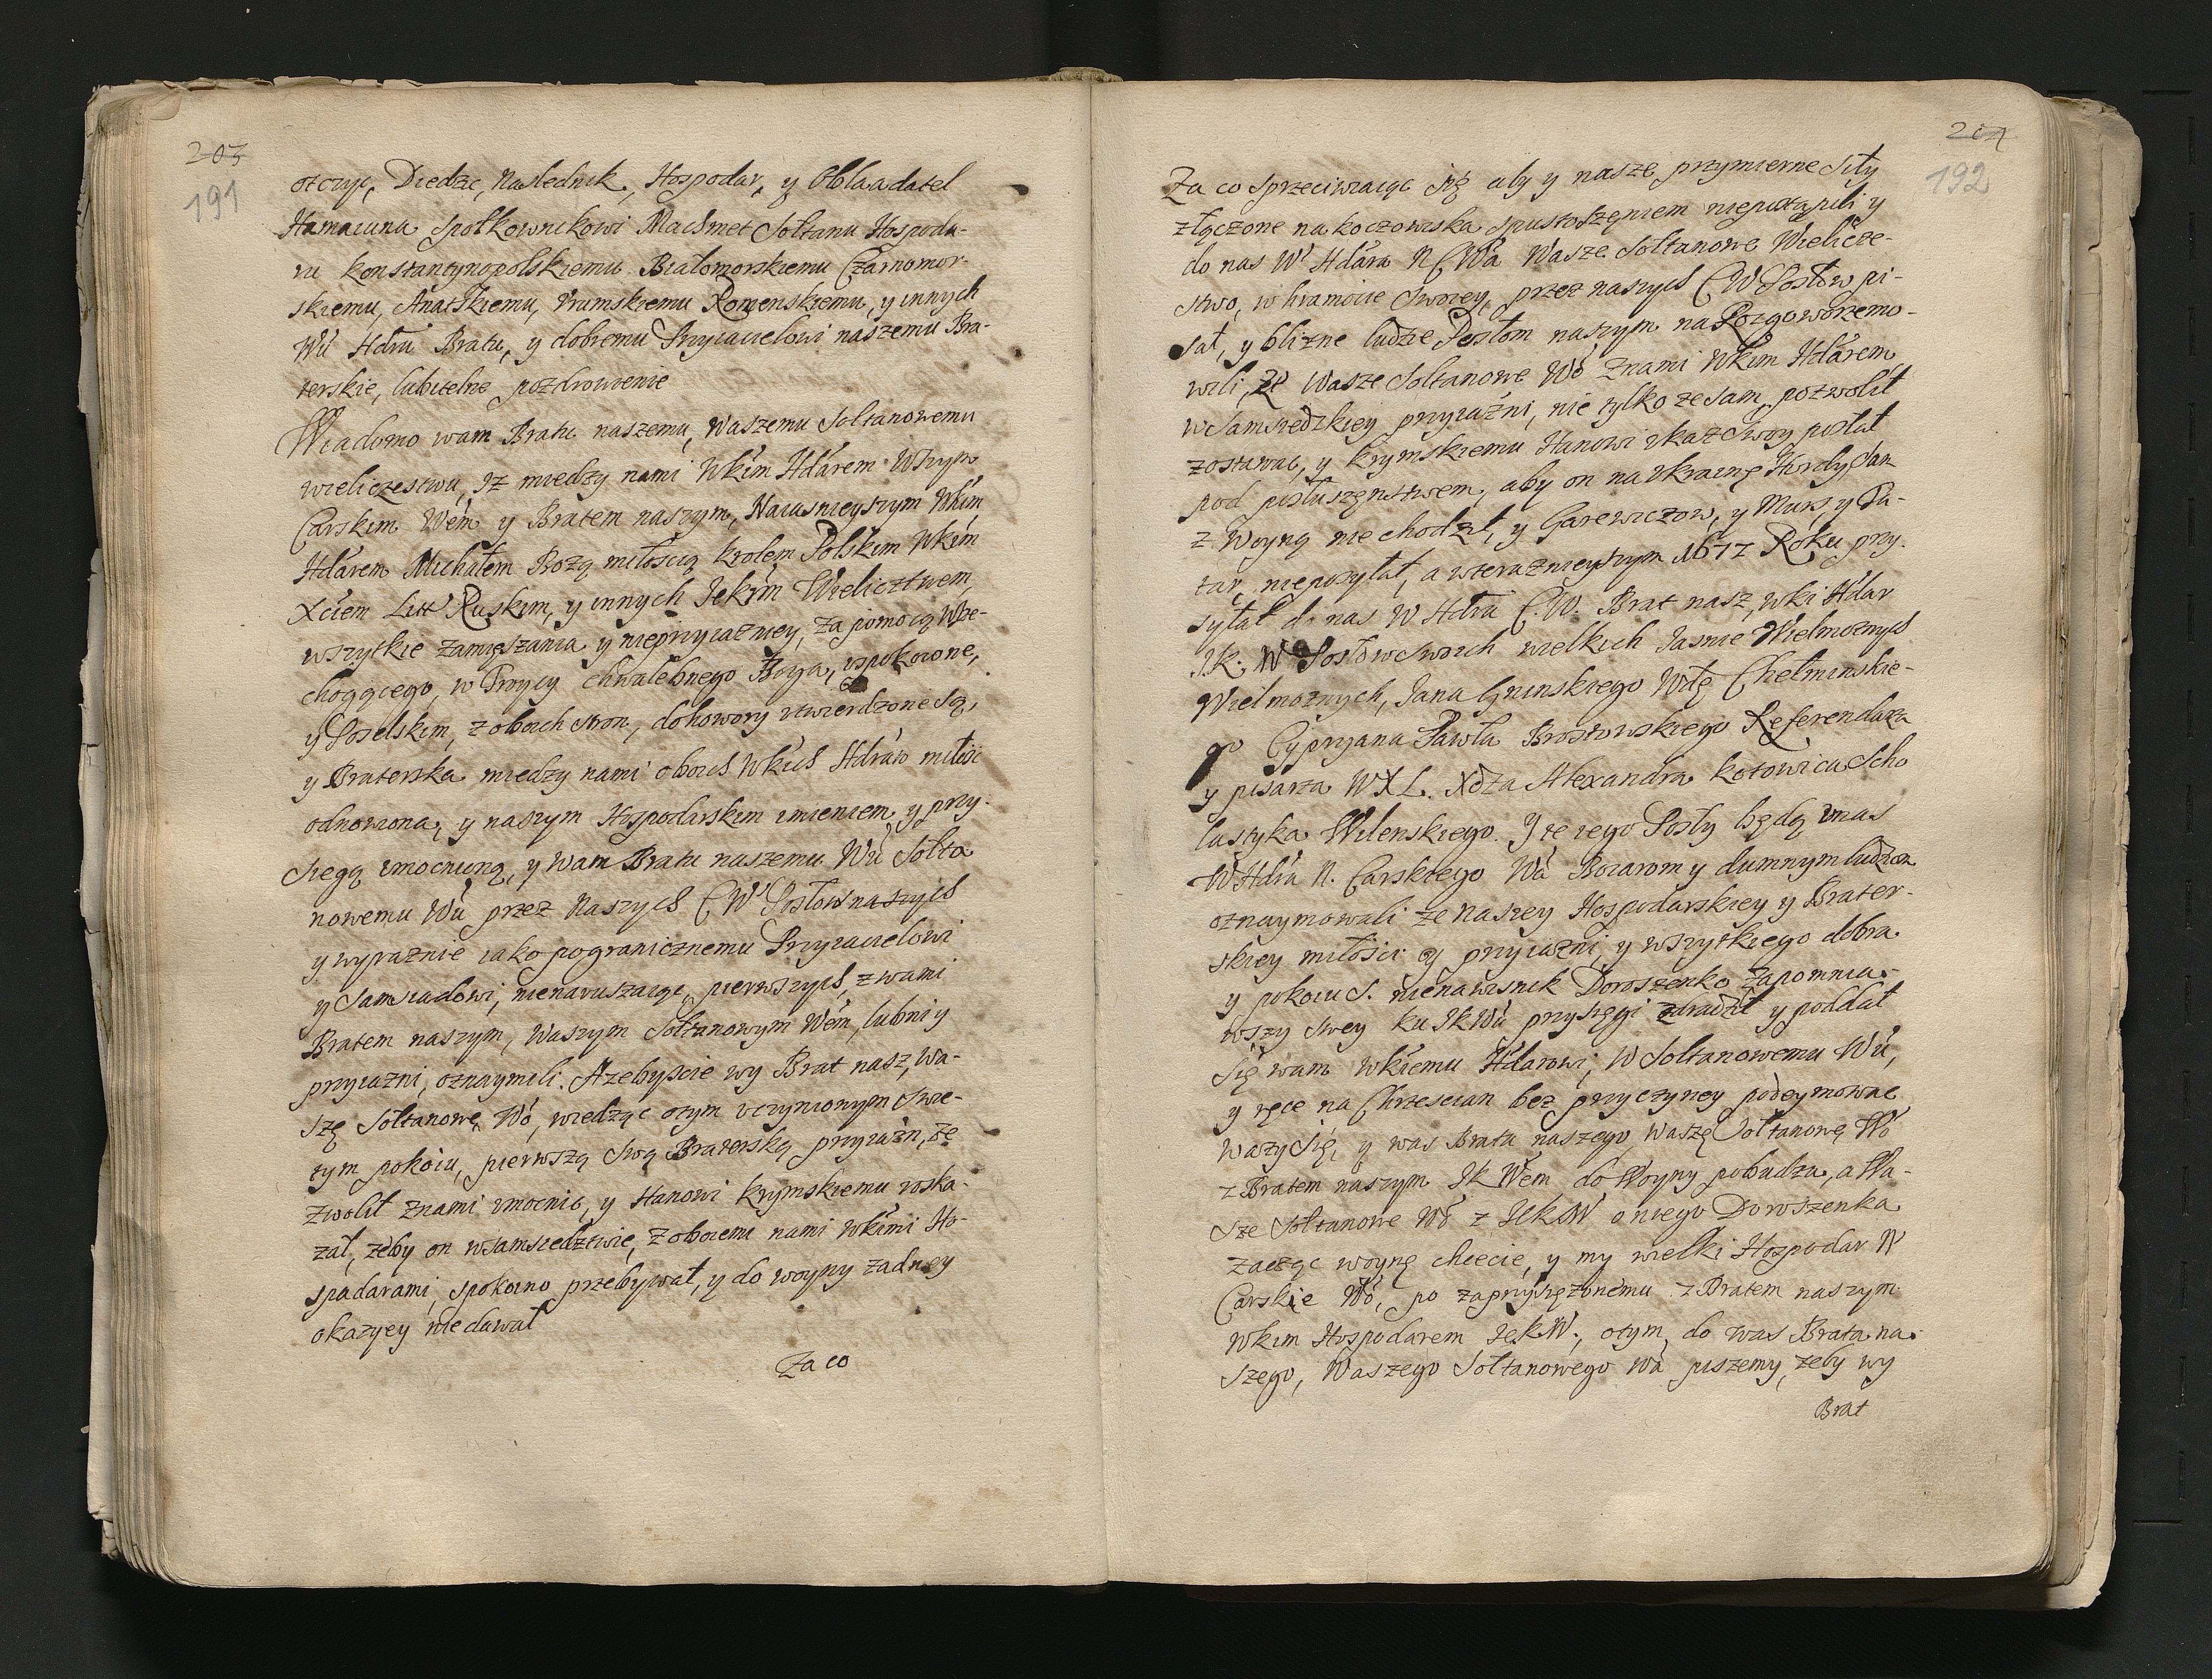 203
191
otczyc, Diedzic, Naslednik, Hospodar, y Obladatel
Hamaiuna Społkownikowi Machmet Sołtanu Hospoda-
ru konstantynopolskiemu Białomorskiemu Czarnomor-
skiemu, Anatskiemu, Vrumskiemu Romenskiemu, y innych
Wú Hdrú Bratu, y dobremu Przyiacielowi naszemu Bra-
terskie, lubitelne pozdrowienie
Wiadomo wam Bratu naszemu, Waszemu Sołtanowemu
wieliczestwu, Iz miedzy nami Wkim Hdárem Wszym
Carskim Wém y Bratem naszym, Naiasnieyszym Wkim
Hdárem Michałem Bożą miłoscią krolem Polskim Wkim
Xciem Litt Ruskim, y innych Jekim Wielicztwem,
wszytkie zamięszania y nieprzyiazniey, za pomocą Wsze-
chogącego, w Troycy chwalebnego Boga, uspokoione,
y Poselskim, z oboich stron, dohowory utwierdzone są,
y Braterska miedzy nami oboich Wkich Hdráw miłość
odnowiona, y naszym Hospodarskim imieniem y przy-
sięgą umocniona, y wam Bratu naszemu Wú Sołta
nowemu Wú przez Naszych C W Posłow naszych
y wyraznie iako pogranicznemu Przyiacielowi
y Samsiadowi, nienaruszaiąc, pierwszych, z wami
Bratem naszym, Waszym Sołtanowym Wém, lubni y
przyiazni, oznaymili. Azebyscie wy Brat nasz, wa-
szę Sołtanowe Wó, wiedząc otym uczynionym swie-
tym pokoiu, pierwszą swą Braterską przyiazn, ze
zwolił znami umocnic, y Hanowi krymskiemu roska-
zał, zeby on wsamsiedztwie, z oboiemi nami Wkimi Ho-
spadarami, spokoino przebywał, y do woyny zadney
okazyey niedawał
Za co
204
192
Za co sprzeciwiaiąc się aby y nasze przymierne siły
złączone na koczowiska spustoszęniem niepustąpili y
do nas W Hdára N C Wá Wasze Sołtanowe Wielicze-
stwo, w hramocie swoiey, przez naszych C W Posłow pi-
sał, y blizne ludzie Posłom naszym na Rozgoworzemo-
wili, Ze Wasze Sołtanowe Wó Znami Wkim Hdárem
wsamsiedzkiey przyiaźni, nie tylko ze sam pozwolił
zostawac, y krymskiemu Hanowi ukaz swoy posłał
pod posłuszęnstwem, aby on na Ukrainę Hordy, sam
z Woyną nie chodził, y Carewiczow, y Murs, y Ta-
tar, nieposyłał, a wteraznieyszym 1677 Roku przy-
syłał do nas W Hdrá C. W. Brat nasz, wki Hdar
J.K. W Posłow swoich wielkich Jasnie Wielmoznych
Wielmoznych, Jana Gninskiego Wdę Chełminskie-
go Cypryana Pawła Brostowskiego Referendarza
y pisarza W X L. Xdza Alexandra kotowicza Scho
lastyka Wilenskiego. I te iego Posły będą unas
W Hdrá N. Carskiego Wá Boiarom y dumnym ludziom
oznaymowali ze naszey Hospodarskiey y Brater-
skiey miłości y przyiazni, y wszytkiego dobra
y pokoiu S. nienawisnik Doroszenko zapomnia-
wszy swey ku JKWú przysięgi zdradził y poddał
się wam Wkiemu Hdarowi, W Sołtanowemu Wú,
y ręce na Chrzescian bez przyczyney podeymować
wazy się, y was Brata naszego, waszę Sołtanowe Wó
z Bratem naszym JK Wém do Woyny pobudza, a Wa-
sze Sołtanowe Wó z JekW o niego Doroszenka
zacząc woynę chcecie, y my wielki Hospodar N
Carskie Wó, po zaprzysiężonemu z Bratem naszym
Wkim Hospodarem JekW., otym do was Brata na-
szego, Waszego Sołtanowego Wá piszemy, zeby wy
Brat